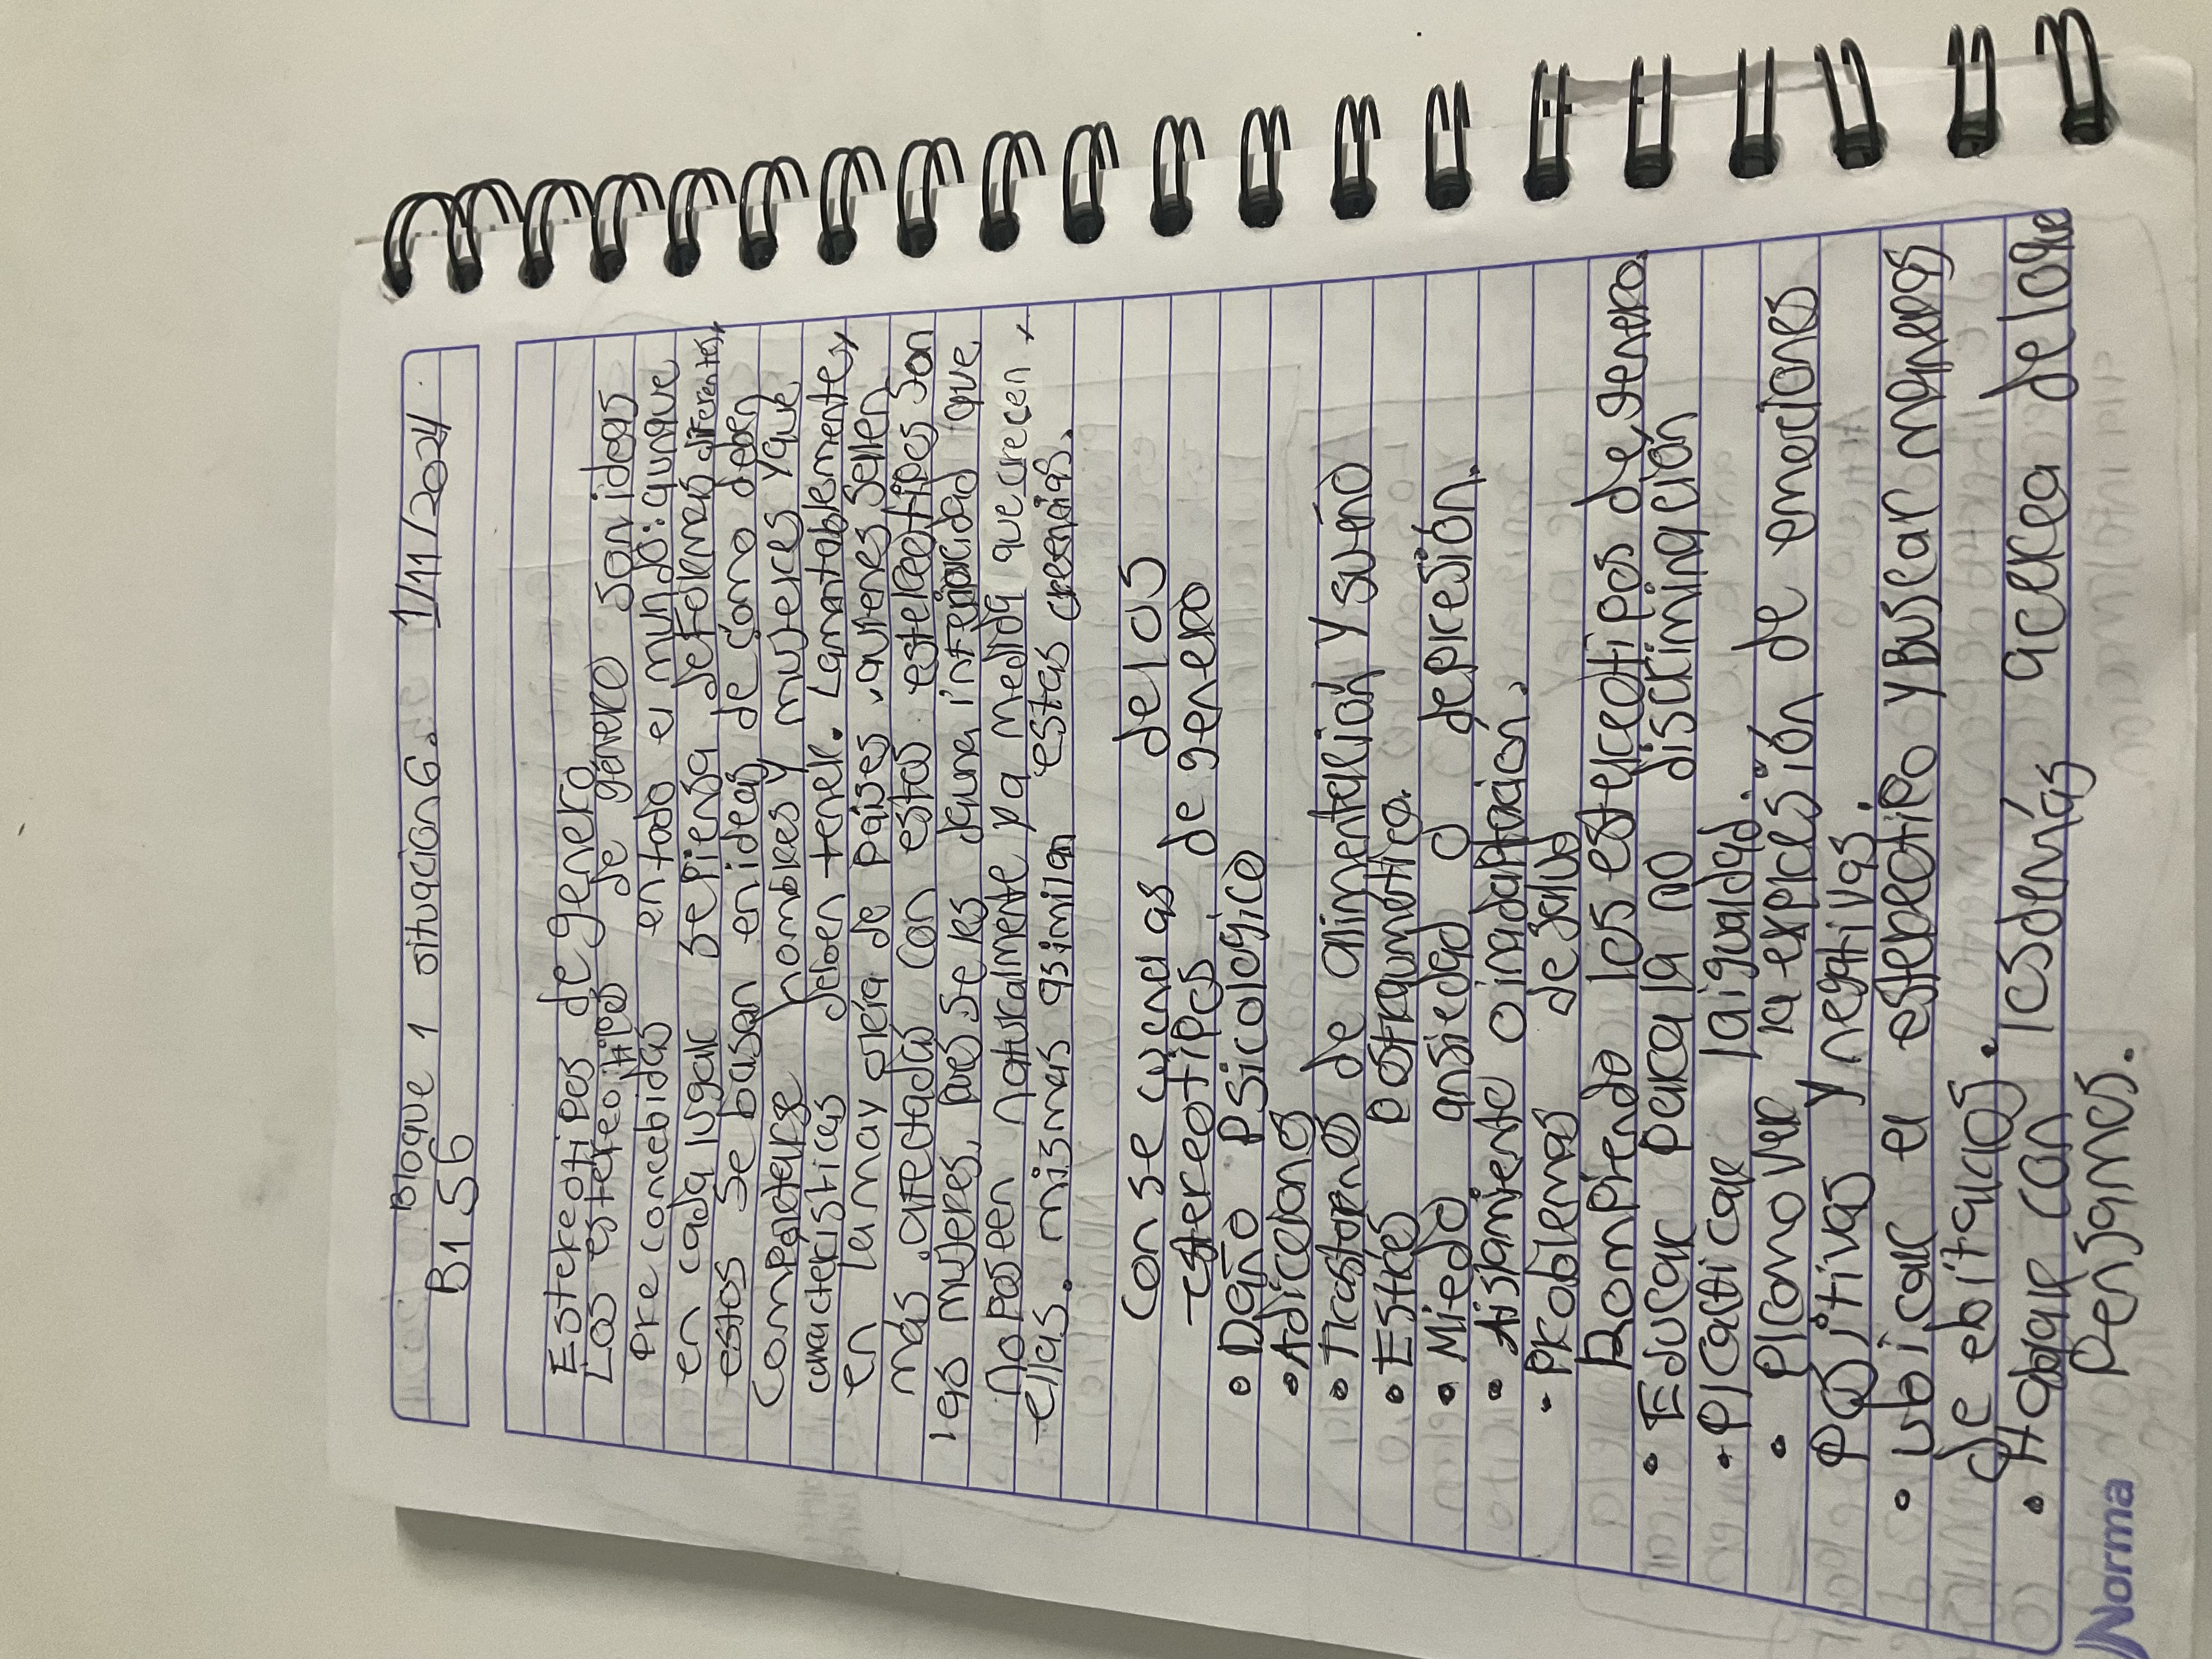 Bloque 1 situacion 6. 1/11/2024
B1 S6
Estereotipos de genero
Los estereotipos de género son ideas
Pre concebidas en todo el mundo: aunque
en cada lugar se piensa de Formas diferentes,
estos se basan en ideas de cómo deben
Comportarse hombres y mujeres y que
características deben tener. Lamentablemente,
en la mayoría de países, quienes salen
más afectadas con estos estereotipos son
las mujeres, pues se les da una inferioridad que
no poseen naturalmente y a medida que crecen,
ellas mismas asimilan estas creencias.
Consecuencias de los
estereotipos de genero
• Daño Psicologico
• Adiciones
• Trastornos de alimentación y sueño
• Estrés postraumático.
• Miedo ansiedad o depresión.
• Aislamiento o inadaptación.
• Problemas de salud
Rompiendo los estereotipos de genero.
• Educar para la no discriminación
• Practicar la igualdad.
• Promover la expresión de emociones
Positivas y negativas.
• ubicar el esterotipo y Buscar maneras
de ebitarlos.
• Hablar con los demás acerca de lo que
Pensamos.
Norma